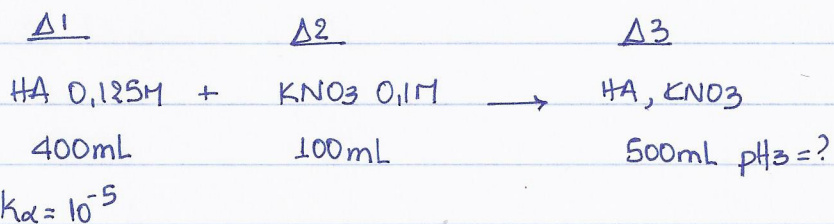 Δ1 Δ2 Δ3
HA 0,125M + KNO3 0,1M → HA, KNO3
400mL 100mL 500mL pH3=?
Kα= 10⁻⁵